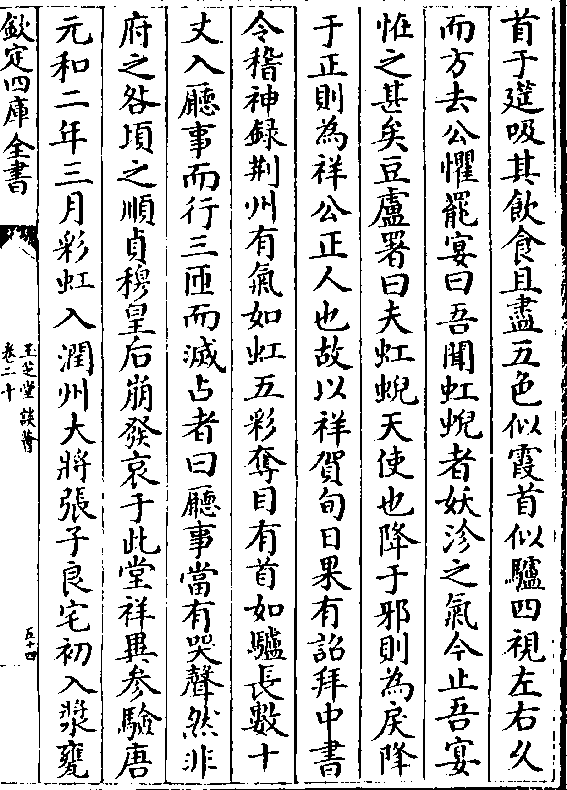 首于筵吸其飲食且盡五色似霞首似驢四視左右久
而方去公懼罷宴曰吾聞虹蜺者妖沴之氣今止吾宴
恠之甚矣豆盧署曰夫虹蜺天使也降于邪則為戾降
于正則為祥公正人也故以祥賀旬日果有詔拜中書
令稽神録荆州有氣如虹五彩奪目有首如驢長數十
丈入廳事而行三匝而滅占者曰廳事當有哭聲然非
府之咎頃之順貞穆皇后崩發哀于此堂祥異参驗唐
元和二年三月彩虹入潤州大將張子良宅初入漿甕
欽定四庫全書
玉芝堂談薈
卷二十
五十四